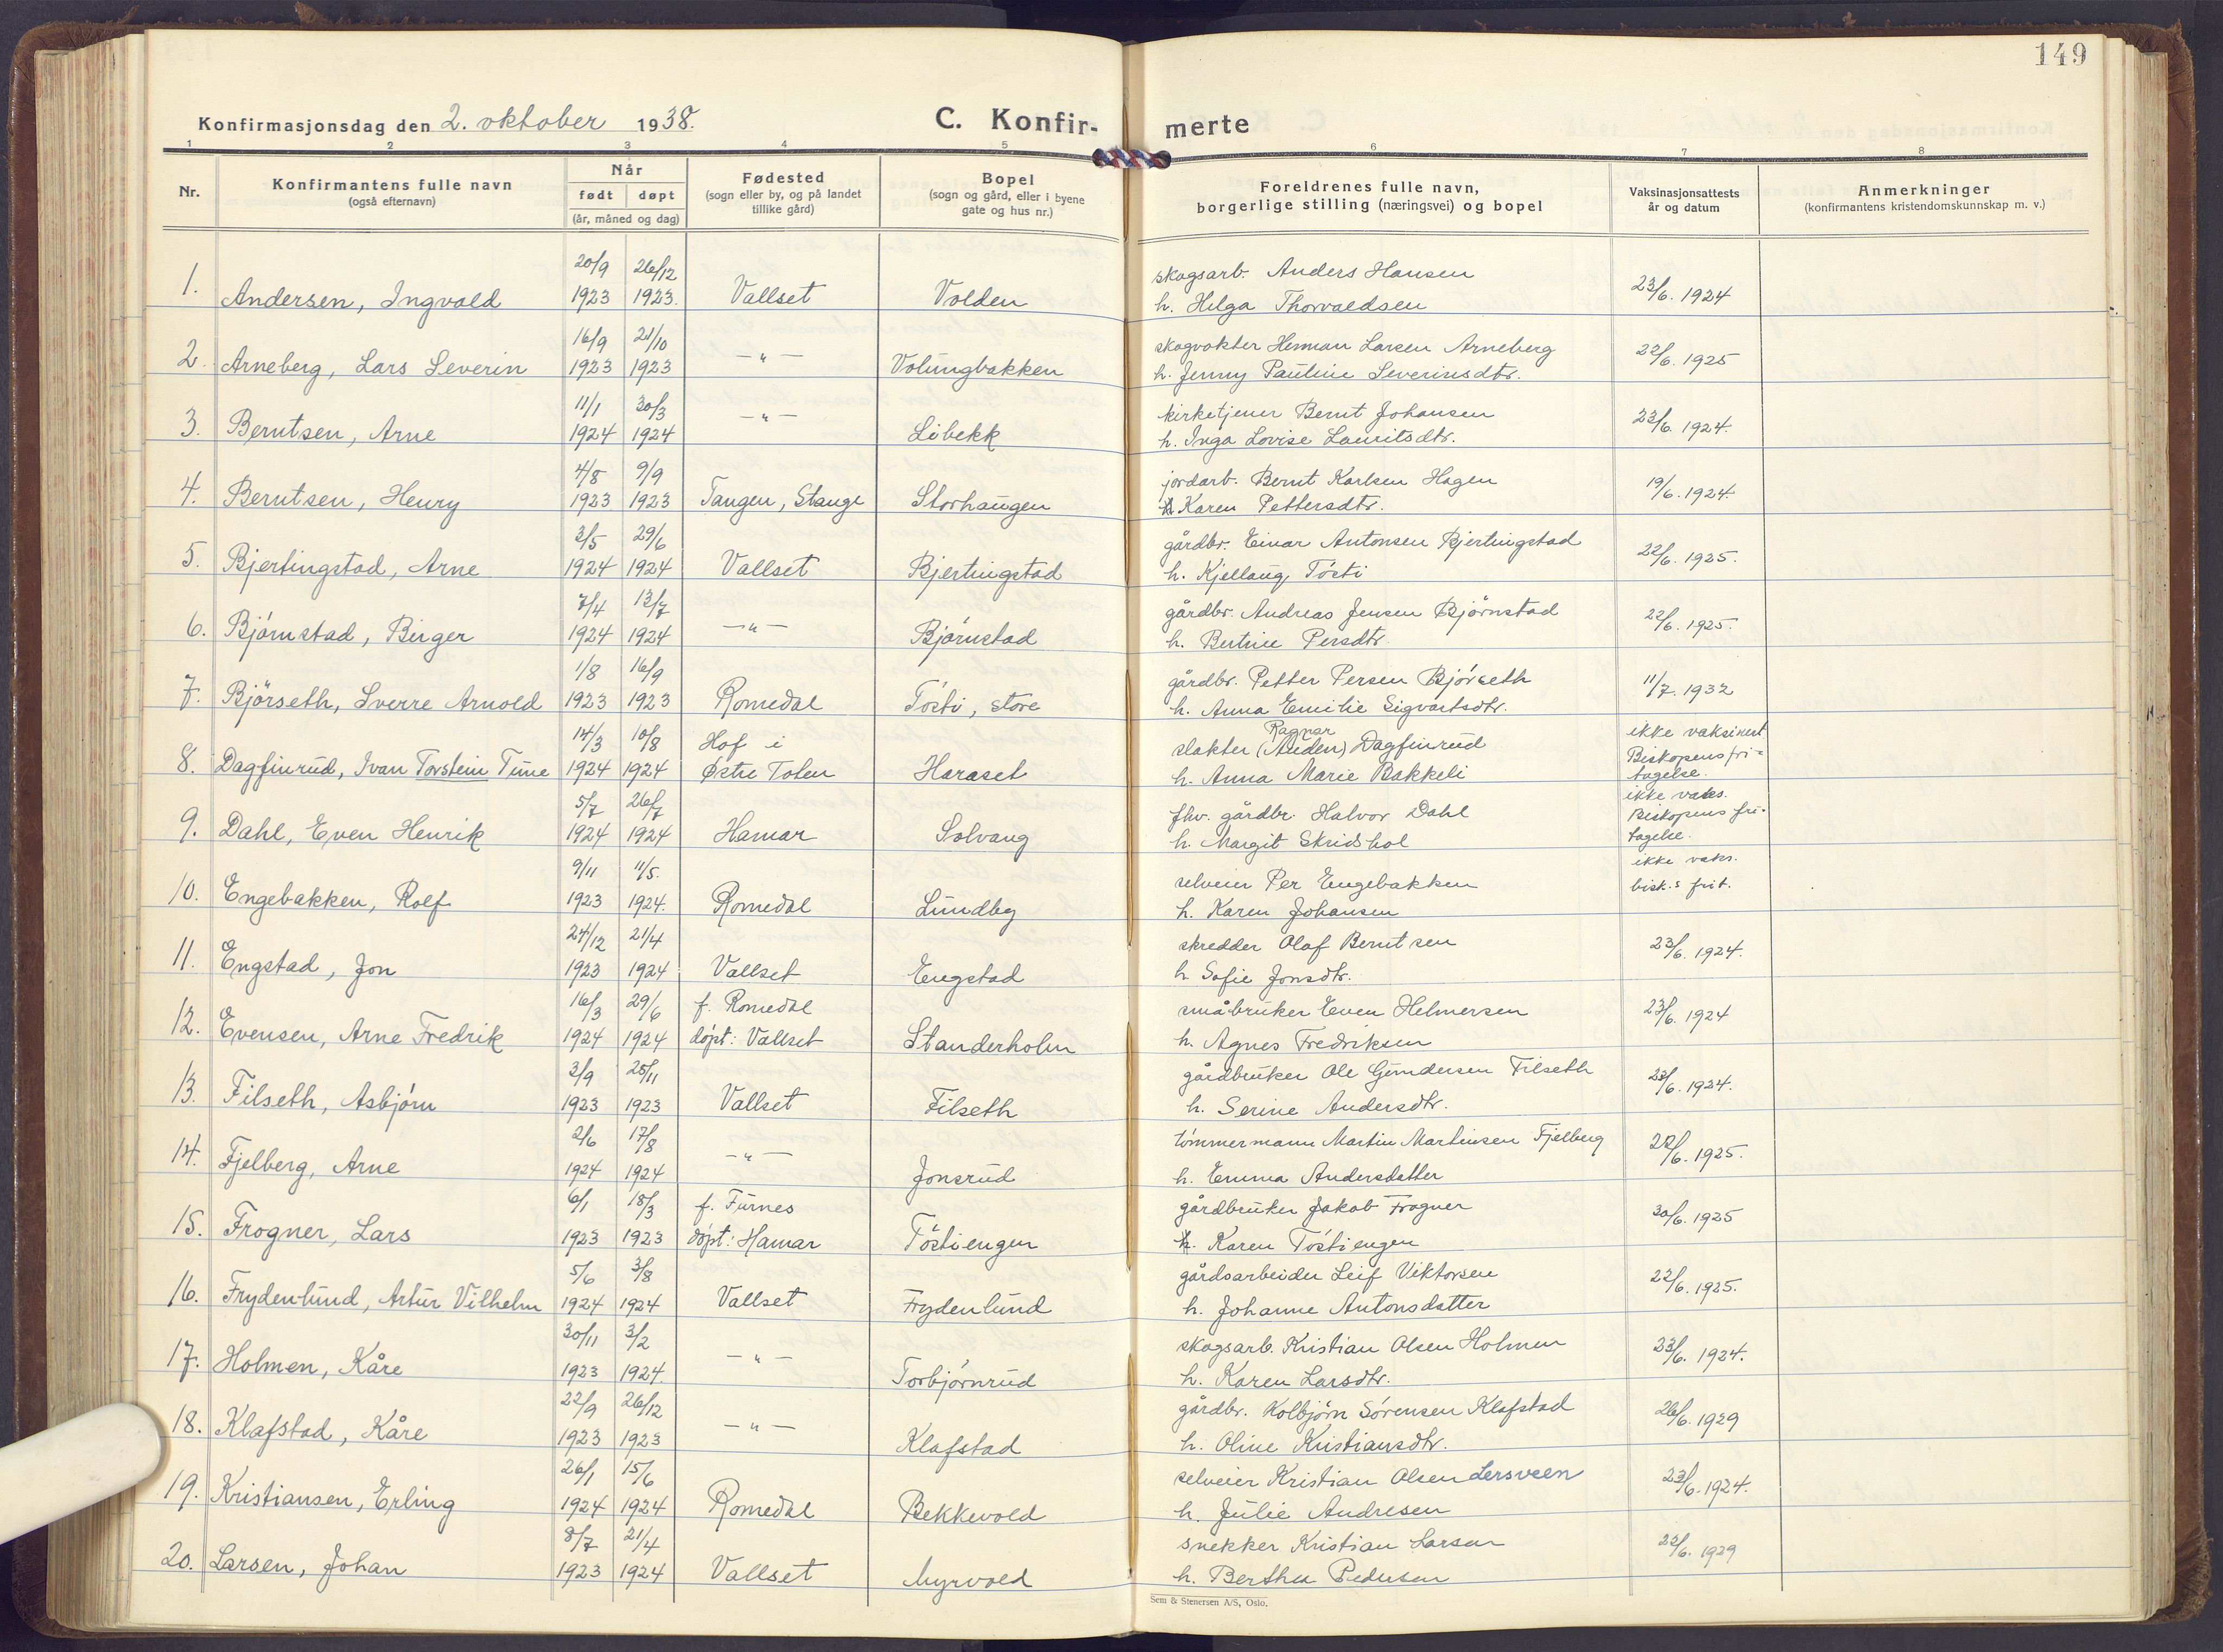 149
Konfirmasjonsdag den 2. oktober 1938.
C. Konfir-
merte
1 2 3 4 5 6 7 8
Nr.
Konfirmantens fulle navn
(også efternavn)
Når
født døpt
(år, måned og dag)
Fødested
(sogn eller by, og på landet
tillike gård)
Bopel
(sogn og gård, eller i byene
gate og hus nr.)
Foreldrenes fulle navn,
borgerlige stilling (næringsvei) og bopel
Vaksinasjonsattests
år og datum
Anmerkninger
(konfirmantens kristendomskunnskap m. v.)
20/9 26/12 skogsarb. Anders Hansen
1. Andersen, Ingvald 1923 1923. Vallset Volden h. Helga Thorvaldsen 23/6. 1924
16/9 21/10 skogvokter Herman Larsen Arneberg
2. Arneberg, Lars Severin 1923 1923 -"- Volungbakken h. Jenny Pauline Severinsdtr. 22/6. 1925
11/1 30/3 kirketjener Bernt Johansen
3. Berntsen, Arne 1924 1924 -"- Libekk h. Inga Lovise Lauritsdtr. 23/6. 1924.
4/8 9/9 jordarb. Bernt Karlsen Hagen
4. Berntsen, Henry 1923 1923 Tangen, Stange Storhaugen h. Karen Pettersdtr. 19/6. 1924.
3/5 29/6 gårdbr. Einar Antonsen Bjertingstad
5. Bjertingstad, Arne 1924 1924 Vallset Bjertingstad h. Kjellaug Tósti 22/6. 1925.
7/4 13/7 gårdbr. Andreas Jensen Björnstad
6. Björnstad, Birger 1924 1924 -"- Björnstad h. Bertine Persdtr. 22/6. 1925.
1/8 16/9 gårdbr. Petter Persen Bjórseth
7. Björseth, Sverre Arnold 1923 1923 Romedal Tósti, store h. Anna Emilie Sigvartsdtr. 11/7. 1932
Ragnar
14/3 10/8 Hof i slakter (Auden) Dagfinrud ikke vaksinert
8. Dagfinrud, Ivan Torstein Tune 1924 1924 Østre Toten Haraset h. Anna Marie Bakkeli Biskopens fri=
tagelse.
5/7 26/7 fhv. gårdbr. Halvor Dahl ikke vaks.
9. Dahl, Even Henrik 1924 1924 Hamar Solvang h. Margit Skridshol Biskopens fri-
tagelse.
9/11 11/5. selveier Per Engebakken ikke vaks.
10. Engebakken, Rolf 1923 1924. Romedal Lundby h. Karen Johansen bisk.s frit.
24/12 21/4 skredder Olaf Berntsen
11. Engstad, Jon 1923 1924 Vallset Engstad h. Sofie Jonsdtr. 23/6. 1924.
16/3 29/6 f. Romedal småbruker Even Helmersen
12. Evensen, Arne Fredrik 1924 1924 dópt: Vallset Standerholm h. Agnes Fredriksen 23/6. 1924
3/9 25/11 gårdbruker Ole Gundersen Filseth
13. Filseth, Asbjórn 1923 1923 Vallset Filseth h. Serine Andersdtr. 23/6. 1924.
2/6 17/8 tómmermann Martin Martinsen Fjelberg
14. Fjelberg, Arne 1924 1924 -"- Jonsrud h. Emma Andersdatter 22/6. 1925.
6/1 18/3 f. Furnes gårdbruker Jakob Frogner
15. Frogner, Lars 1923 1923 dópt: Hamar Tóstiengen h. Karen Tóstiengen 30/6. 1925
5/6 3/8 gårdsarbeider Leif Viktorsen
16. Frydenlund, Artur Vilhelm 1924 1924 Vallset Frydenlund h. Johanne Antonsdatter 22/6. 1925.
30/11 3/2 skogsarb. Kristian Olsen Holmen
17. Holmen, Kåre 1923 1924. -"- Torbjórnrud h. Karen Larsdtr. 23/6. 1924.
22/9 26/12 gårdbr. Kolbjórn Sórensen Klafstad
18. Klafstad, Kåre 1923 1923 -"- Klafstad h. Oline Kristiansdtr. 26/6. 1929
26/1 15/6 selveier Kristian Olsen Lersveen
19. Kristiansen, Erling 1924 1924 Romedal Bekkevold h. Julie Andresen 23/6. 1924.
8/7 21/4 snekker Kristian Larsen
20. Larsen, Johan 1923 1924 Vallset Myrvold h. Berthea Pedersen 22/6. 1929
Sem & Stenersen A/S, Oslo.